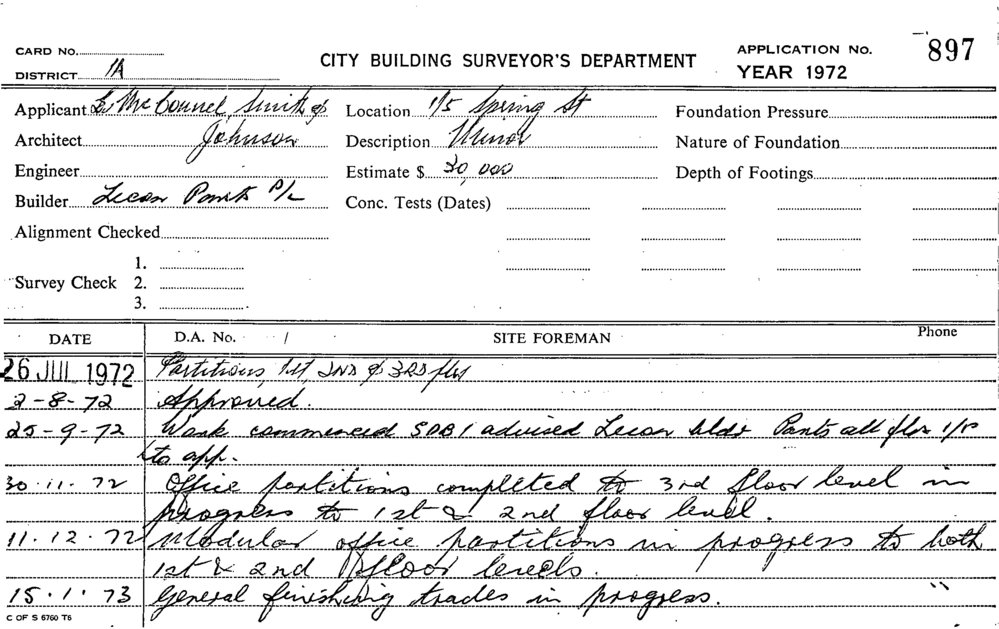 CARD No.
DISTRICT 1A
CITY BUILDING SURVEYOR'S DEPARTMENT
APPLICATION No. 897
YEAR 1972
Applicant McConnel, Smith &
Architect Johnson
Engineer
Builder Lecon Parts P/L
Alignment Checked
Survey Check 1.
2.
3.
Location 1/5 Spring St
Description Minor
Estimate $ 30,000
Conc. Tests (Dates)
Foundation Pressure
Nature of Foundation
Depth of Footings
DATE D.A. No. / SITE FOREMAN Phone
26 JUL 1972 Partitions, 1st, 2ND & 3RD flrs
2-8-72 Approved.
25-9-72 Work commenced advised Lecon bldr Parts all flrs 1/P
to app.
30.11.72 Office partitions completed to 3rd floor level in
progress to 1st & 2nd floor level.
11.12.72 Modular office partitions in progress to both
1st & 2nd floor levels.
15.1.73 General finishing trades in progress. "
C OF S 6760 T6